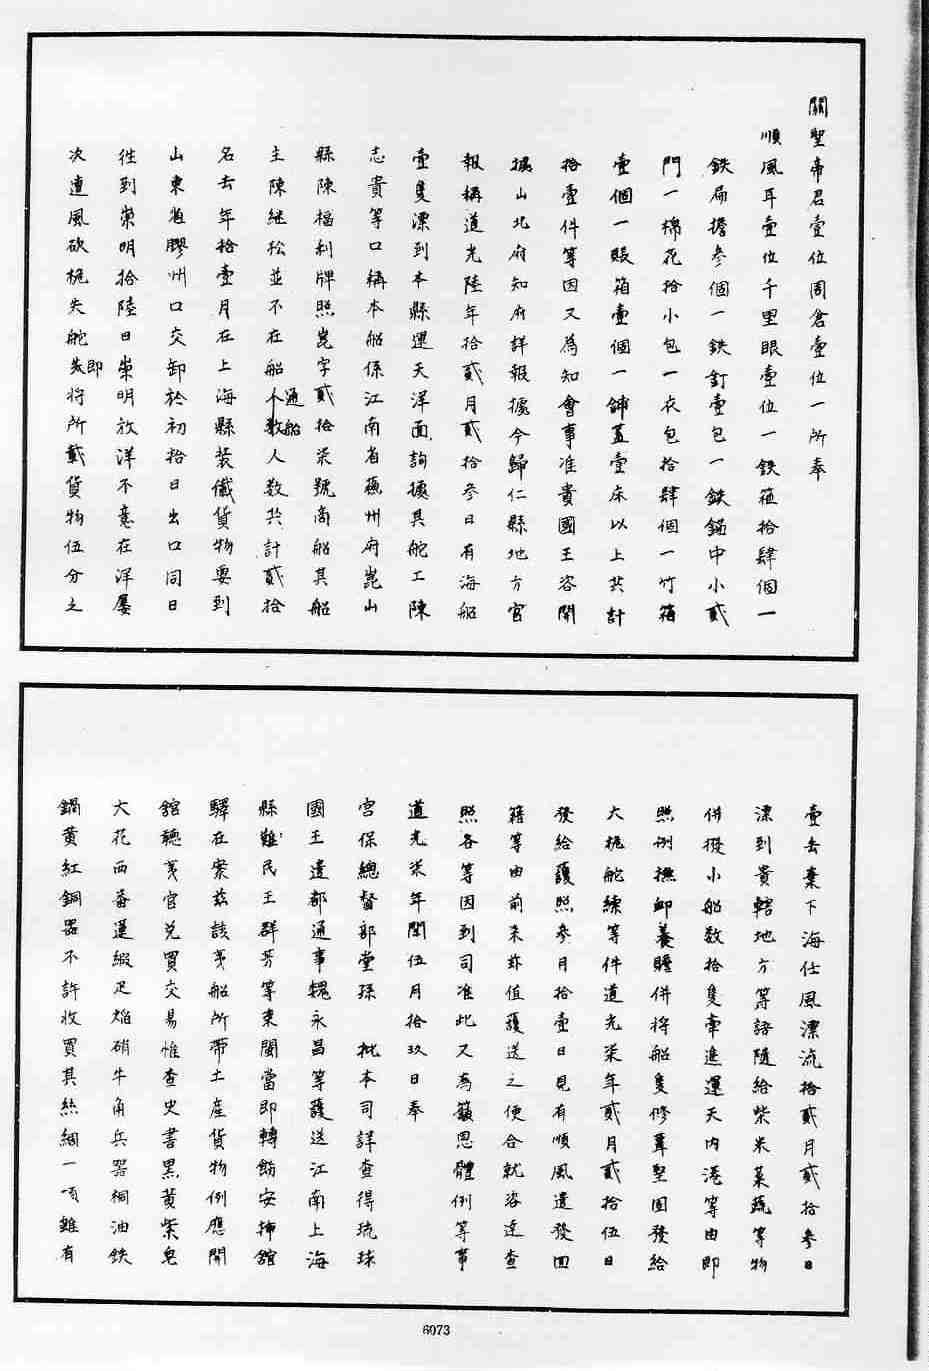 關聖帝君壹位周倉壹位一所奉
順風耳壹位千里眼壹位一鉄箍拾肆個一
鉄扃擔叁個一鉄釘壹包一鉄錨中小貳
門一棉花拾小包一衣包拾肆個一竹箱
壹個一賬箱壹個一鋪蓋壹床以上共計
拾壹件等因又為知會事准貴國王咨開
據山北府知府詳報據今歸仁縣地方官
報稱道光陸年拾貳月貳拾參日有海船
壹隻漂到本縣運天洋面詢據其舵工陳
志貴等口稱本船係江南省蘇州府崑山
縣陳福利牌照崑字貳拾柒號商船其船
主陳继松並不在船通船人数共計貳拾
名去年拾壹月在上海縣装儎貨物要到
山東省膠州口交卸於初拾日出口同日
徃到崇明拾陸日崇明放洋不意在洋屢
次遭風砍桅失舵即将所載貨物伍分之
壹丟棄下海任風漂流拾貳月貳拾參日
漂到貴轄地方等語隨給柴米菜蔬等物
併撥小船数拾隻牽進運天内港等由即
照例撫卹養贍併将船隻修葺堅固發給
大桅舵縴等件道光柒年貳月貳拾伍日
發給護照參月拾壹日見有順風遣發回
籍等由前来茲值護送之便合就咨逹查
照各等因到司准此又為籲恩體例等事
道光柒年閏伍月拾玖日奉
宮保總督部堂孫 批本司詳查得琉球
國王遣都通事魏永昌等護送江南上海
縣難民王群芳等来閩當即轉飭安揷舘
驛在案茲該夷船所帶土產貨物例應開
舘聽夷官兌買交易惟查史書黑黄紫皂
大花西番蓮緞疋焔硝牛角兵器桐油鉄
鍋黄紅銅器不許收買其絲綢一項雖有
6073